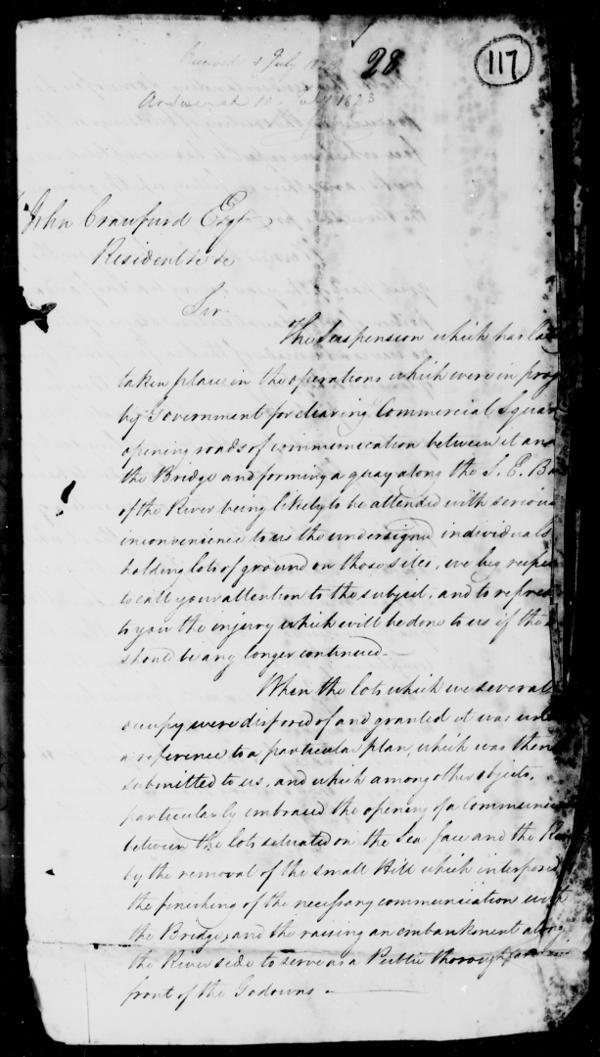 Received July
28
117
Answered 10 July 1823
John Crawfurd Esqr
Resident &c &c
Sir
The Suspension which has la
taken place in the operations which were in prog
by Government for clearing Commercial Square
opening roads of communication between it and
the Bridge and forming a quay along the S. E. Ba
of the River being likely to be attended with serious
inconvenience to us the undersigned individuals
holding lots of ground on those sites, we beg respec
to call your attention to the subject, and to repres
to you the injury which will be done to us if the
should be any longer continued.—
When the lots which we several
occupy were disposed of and granted it was und
a reference to a particular plan, which was then
submitted to us, and which among other objects,
particularly embraced the opening of a Communica
between the lots situated on the Sea face and the R
by the removal of the small Hill which interposed
the finishing of the necessary communication with
the Bridge, and the raising an embankment along
the River side to serve as a Public thoroughfare in
front of the Godowns.—